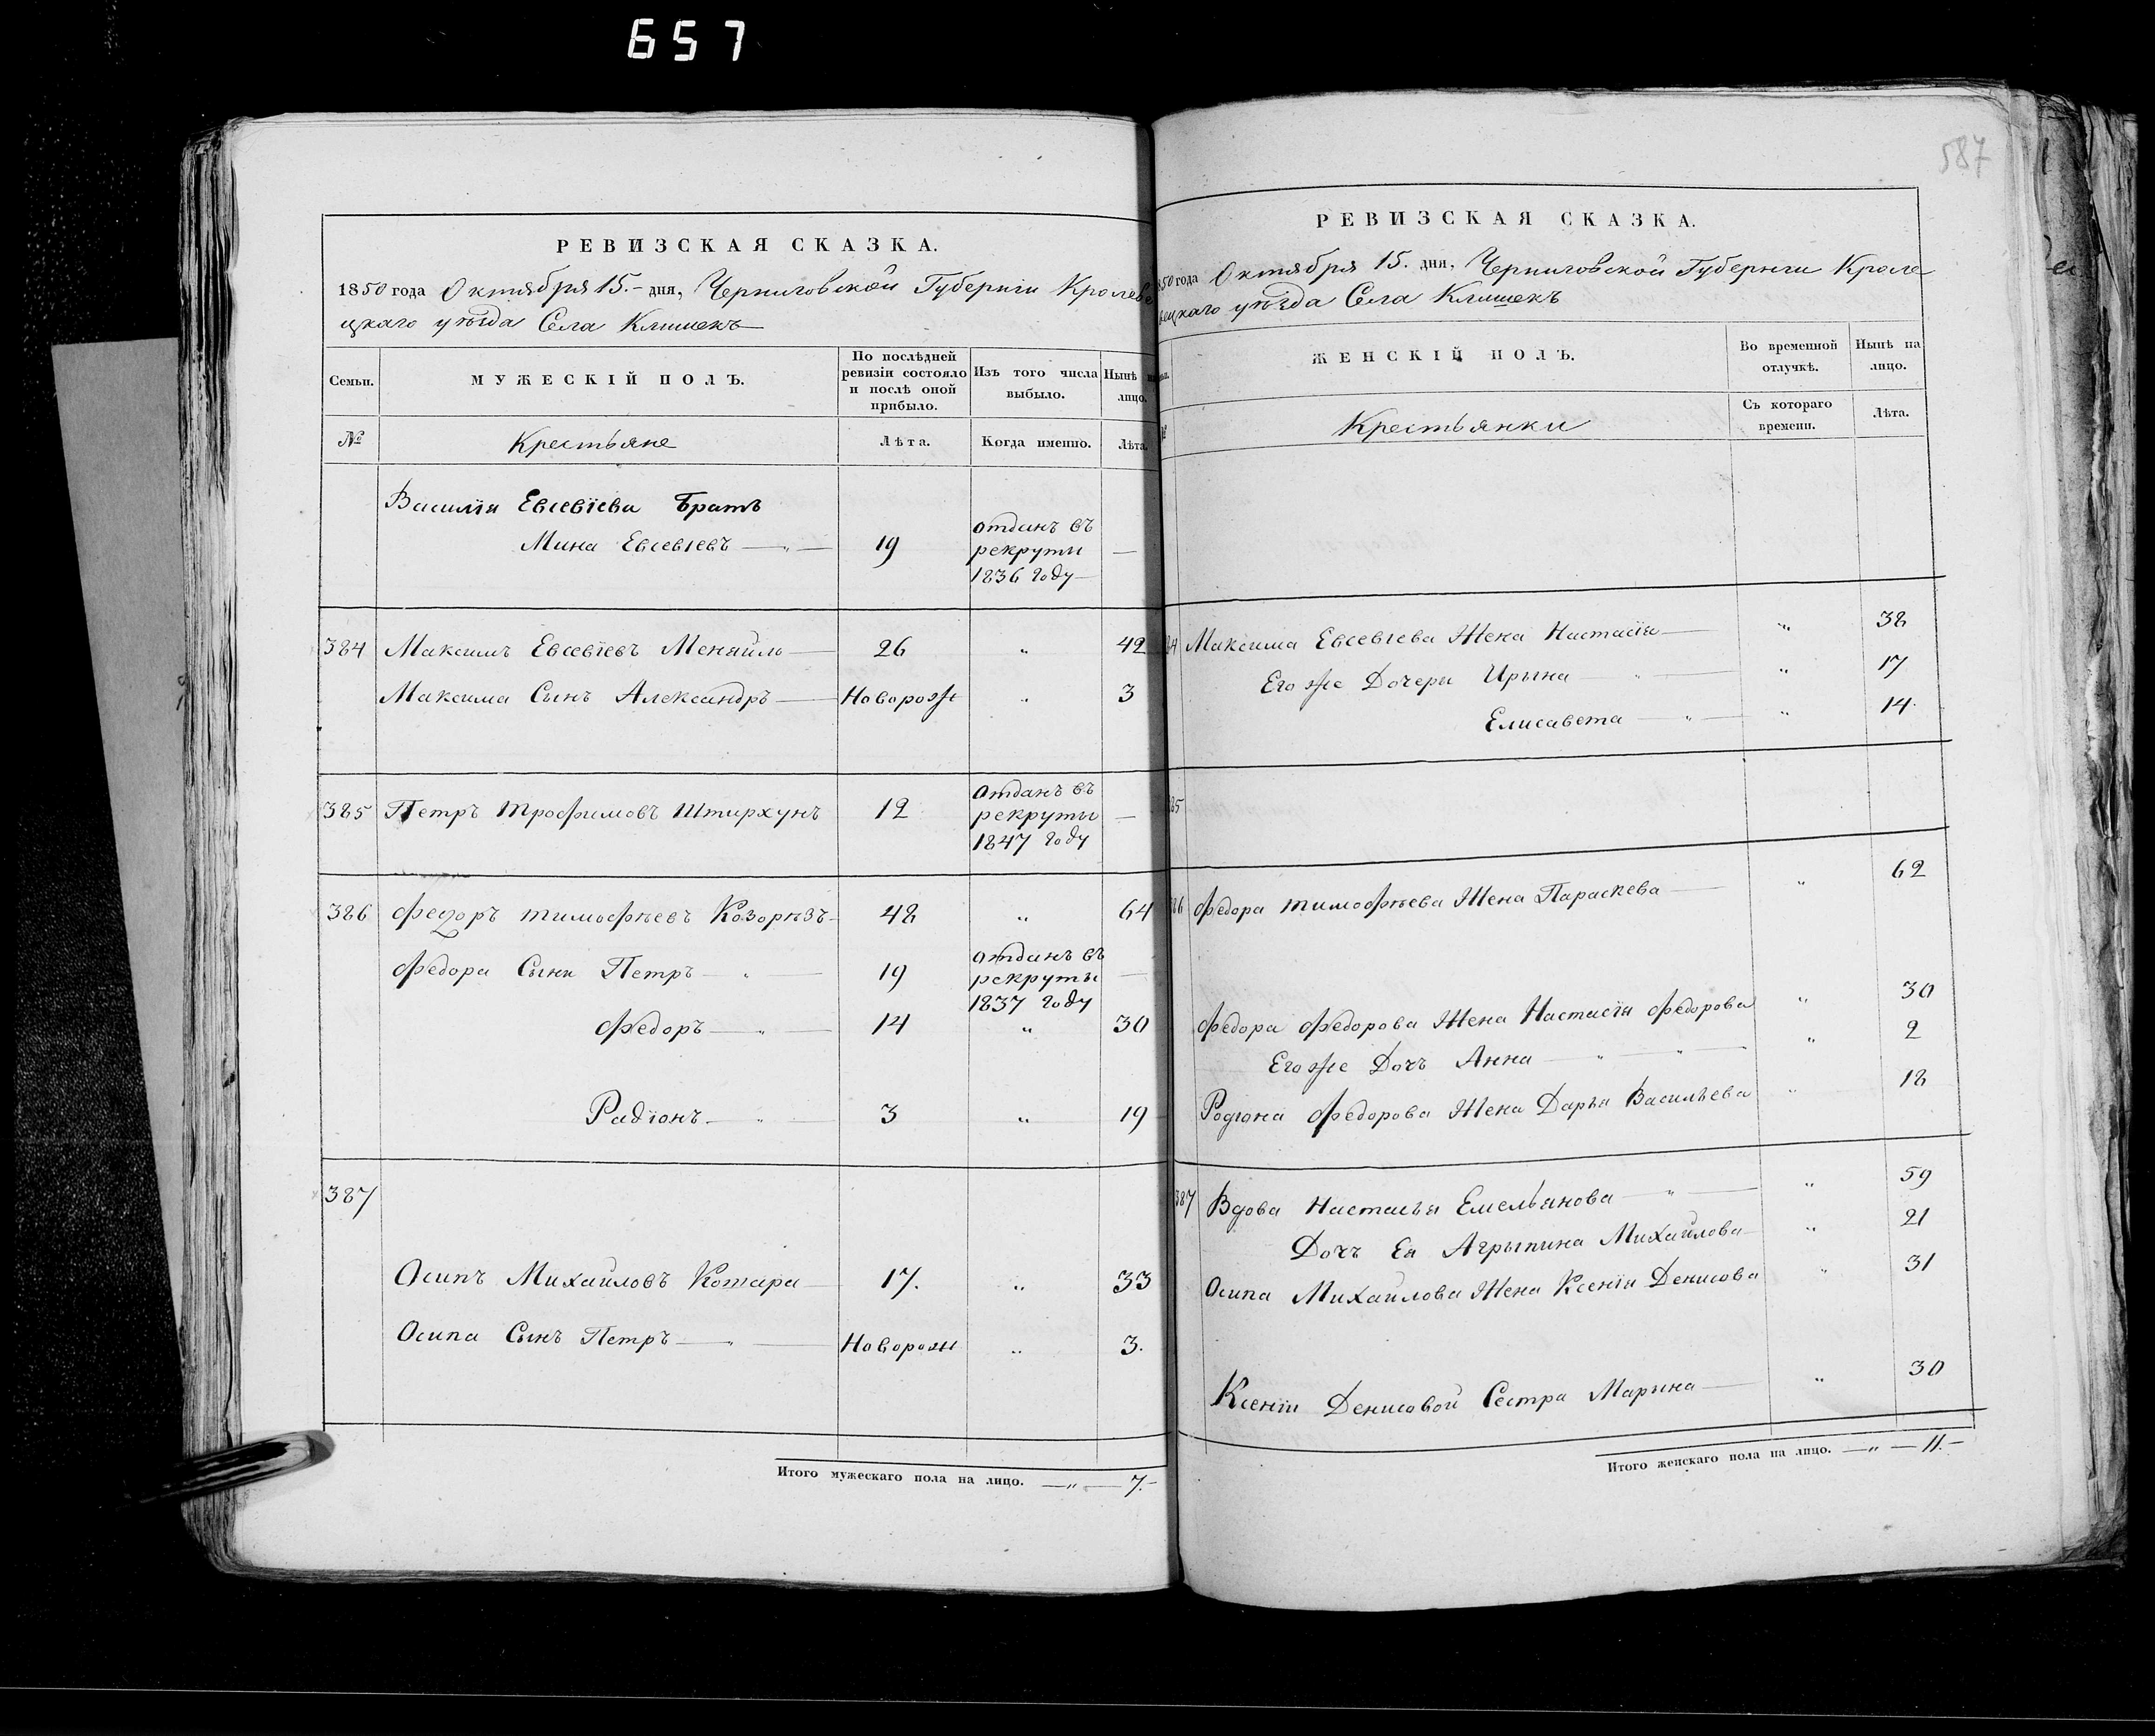 657
587
РЕВИЗСКАЯ СКАЗКА.
1850 года Октября 15.- дня, Черниговской Губернiи Кролеве
цкаго уѣзда Села Клишекъ
Семьи.
МУЖЕСКIЙ ПОЛЪ.
По послѣдней ревизiи состояло и послѣ оной прибыло.
Изъ того числа выбыло.
Нынѣ на лицо.
№
Крестьяне
Лѣта.
Когда именно.
Лѣта.
Василiя Евсевiева Братъ
Мина Евсевiевъ — „ — 19 отданъ въ рекруты 1836 году —
384 Максимъ Евсевiевъ Меняйло 26 „ 42
Максима Сынъ АлександръНоворож „ 3
385 Петръ Трофимовъ Штирхунъ 12 отданъ въ рекруты 1847 году —
386 Федоръ Тимофѣевъ Козорѣзъ 48 „ 64
Федора Сыны Петръ — „ — 19 отданъ въ рекруты 1837 году —
Федоръ — „ — 14 „ 30
Радiонъ — „ — 3 „ 19
387
Осипъ Михайловъ Котара 17. „ 33
Осипа Сынъ Петръ — „ — Новорож „ 3.
Итого мужескаго пола на лицо. — „ — 7.-
РЕВИЗСКАЯ СКАЗКА.
850 года Октября 15. дня, Черниговской Губернiи Кроле
вецкаго уѣзда Села Клишекъ
ЖЕНСКIЙ ПОЛЪ.
Во временной отлучкѣ.
Нынѣ на лицо.
Крестьянки
Съ котораго времени.
Лѣта.
84 Максима Евсевiева Жена Настасiя — „ 38
Его же Дочери Ирына — „ — „ 17
Елисавета — „ — „ 14.
85
86 Федора Тимофѣева Жена Параскева — „ 62
Федора Федорова Жена Настасiя Федорова „ 30
Его же Дочь Анна — „ — „ — „ 2
Родiона Федорова Жена Дарья Васильева „ 18
387 Вдова Настасья Емельянова — „ — „ 59
Дочь Ея Агрыпина Михайлова „ 21
Осипа Михайлова Жена Ксенiя Денисова „ 31
Ксенiи Денисовой Сестра Марына — „ 30
Итого женскаго пола на лицо. — „ — 11.-